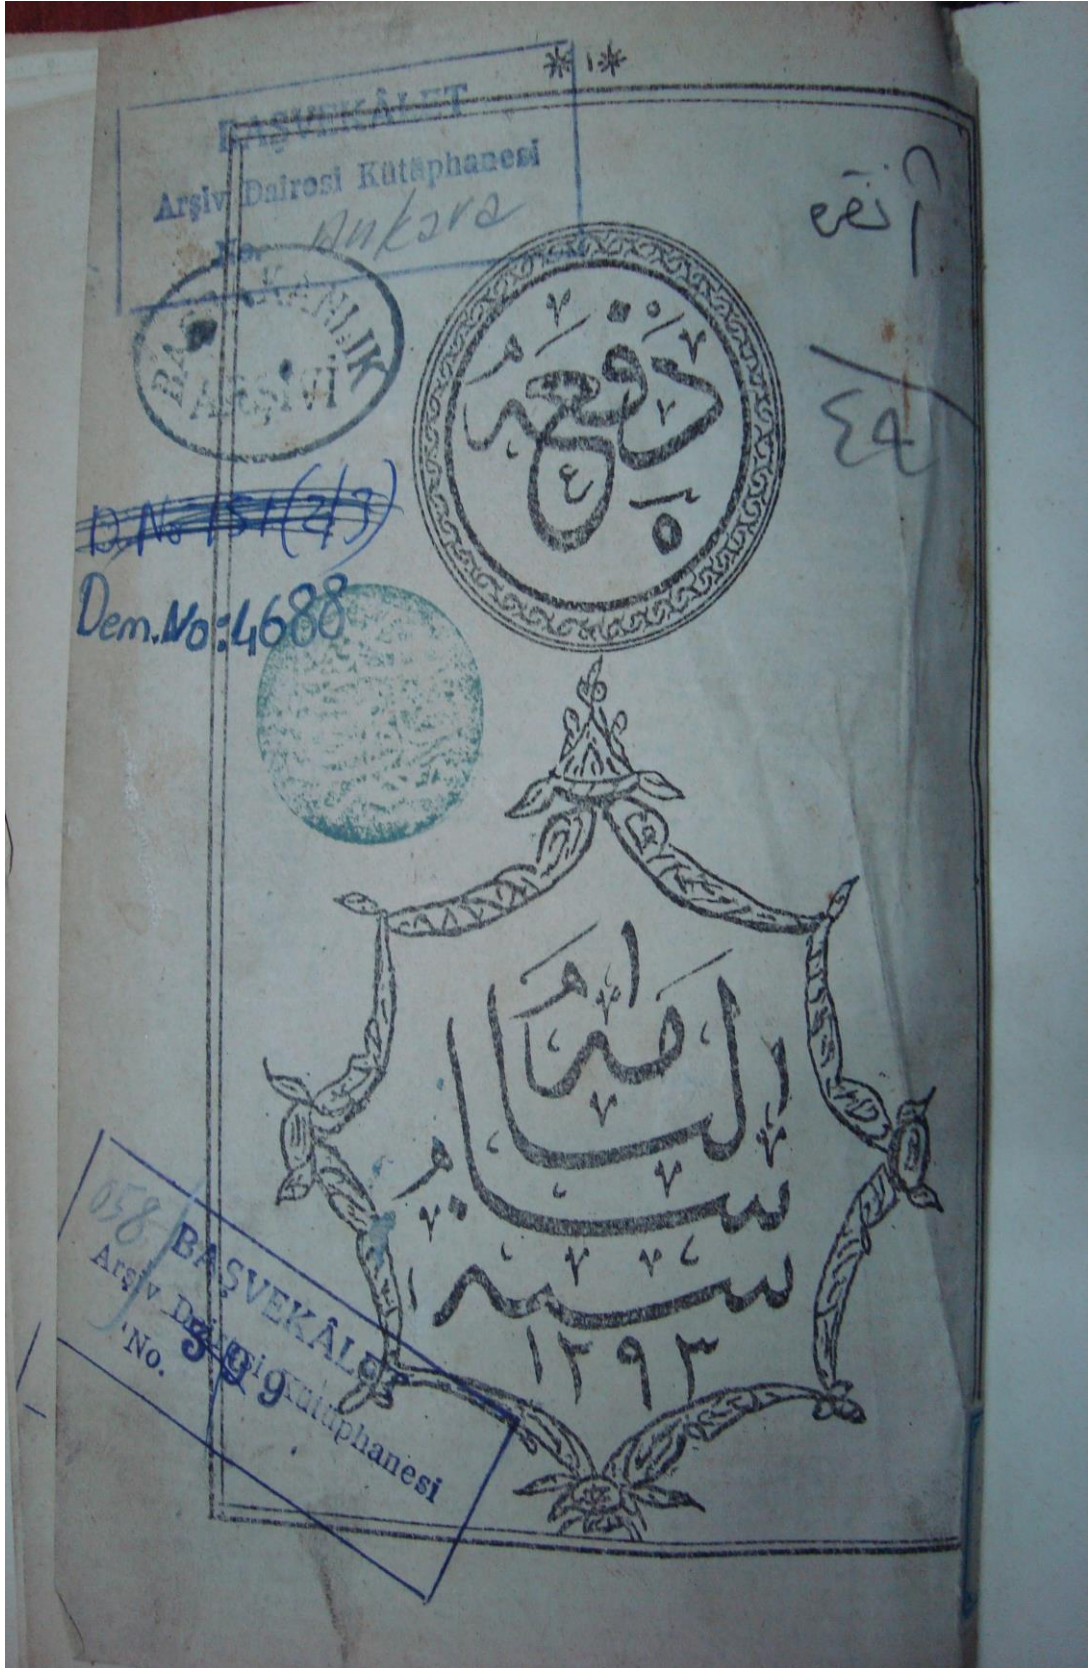 *١*
BAŞVEKÂLET
Arşiv Dairesi Kütüphanesi
No. Ankara
آنقره
BAŞBAKANLIK
ARŞİVİ
دفعه
٥
D.No 151(2/3)
Dem.No:4688
سالنامه
سنه
١٢٩٣
BAŞVEKÂLET
Arşiv Dairesi Kütüphanesi
No. 399